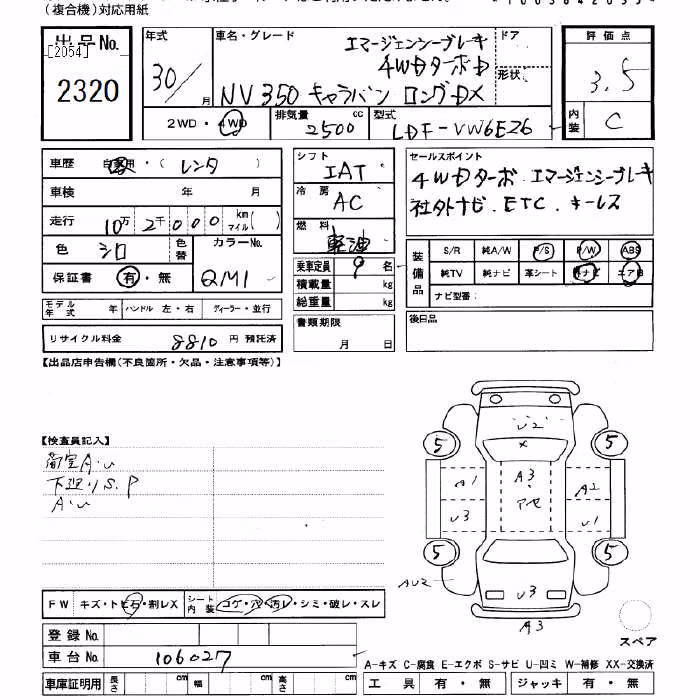 (複合機)対応用紙
出品No.
[2054]
2320
年式
30/
月
車名・グレード
エマージェンシーブレーキ
4WDターボD
NV350 キャラバン ロングDX
ドア
形状
評価点
3.5
内装
C
2WD・4WD
排気量
2500
cc
型式
LDF-VW6E26
車歴
自家用・(レンタ)
車検
年
月
走行
10万2千000
km
マイル
( )
色
シロ
色替
カラーNo.
QM1
保証書
有・無
モデル年式
年
ハンドル 左・右
ディーラー・並行
リサイクル料金
8810
円 預託済
シフト
IAT
冷房
AC
燃料
軽油
乗車定員
9
名
積載量
kg
総重量
kg
書類期限
月
日
セールスポイント
4WDターボ. エマージェンシーブレーキ
社外ナビ. ETC. キーレス
装備品
S/R
純A/W
P/S
P/W
ABS
純TV
純ナビ
革シート
ナビ型番:
後日品
【出品店申告欄(不良箇所・欠品・注意事項等)】
【検査員記入】
荷室A.U
下廻りS.P
A.U
U2
×
5
5
A1
A3
アセ
A2
U3
U1
5
5
AU2
U3
A3
スペア
FW
キズ・トビ石・割レX
シート内装
コゲ・穴・汚レ・シミ・破レ・スレ
登録No.
車台No.
106027
車庫証明用
長さ
cm
幅
cm
高さ
cm
A-キズ C-腐食 E-エクボ S-サビ U-凹ミ W-補修 XX-交換済
工具
有・無
ジャッキ
有・無